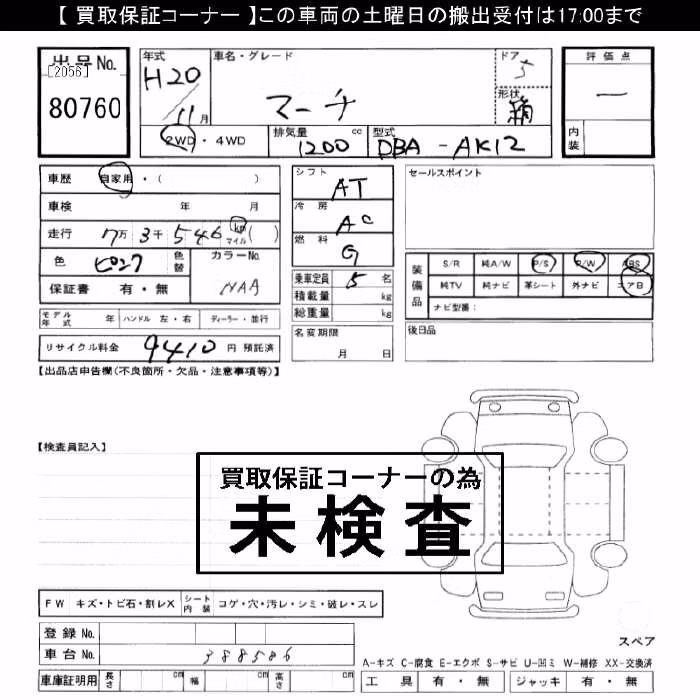 【 買取保証コーナー 】この車両の土曜日の搬出受付は17:00まで
出品No.
[2056]
80760
年式
H20/11月
車名・グレード
マーチ
ドア
5
形状
箱
評価点
―
内装
2WD・4WD
排気量
1200 cc
型式
DBA-AK12
車歴 自家用・( )
車検 年 月
走行 7万3千546 km マイル ( )
色 ピンク 色替
カラーNo.
NAA
保証書 有・無
シフト
AT
冷房
AC
燃料
G
セールスポイント
装備品
S/R 純A/W P/S P/W ABS
純TV 純ナビ 革シート 外ナビ エアB
ナビ型番:
乗車定員 5 名
積載量 kg
総重量 kg
モデル年式 年 ハンドル 左・右 ディーラー・並行
リサイクル料金 9410 円 預託済
名変期限
月 日
後日品
【出品店申告欄(不良箇所・欠品・注意事項等)】
【検査員記入】
買取保証コーナーの為
未検査
FW キズ・トビ石・割レX
シート内装 コゲ・穴・汚レ・シミ・破レ・スレ
登録No.
車台No. 388586
車庫証明用 長さ cm 幅 cm 高さ cm
スペア
A-キズ C-腐食 E-エクボ S-サビ U-凹ミ W-補修 XX-交換済
工具 有・無 ジャッキ 有・無